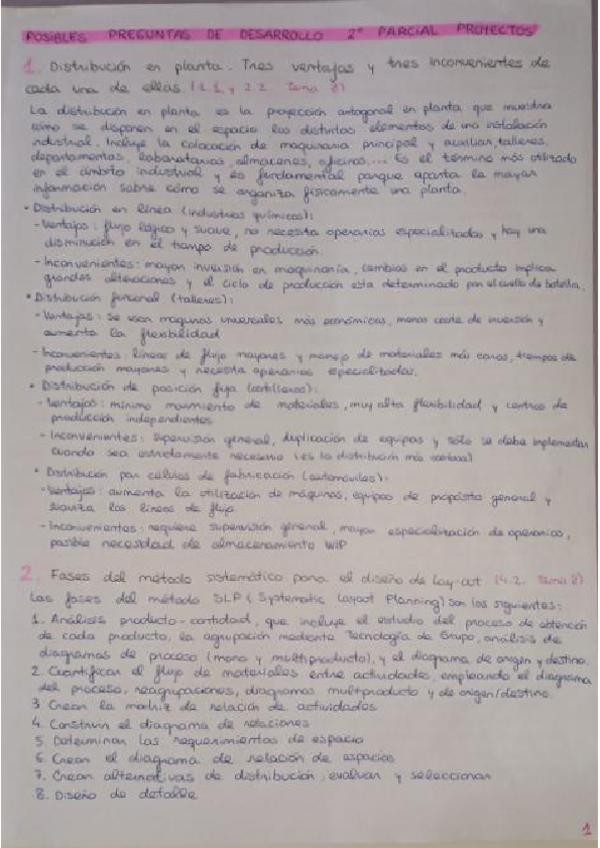 POSIBLES PREGUNTAS DE DESARROLLO 2º PARCIAL PROYECTOS
1. Distribución en planta. Tres ventajas y tres inconvenientes de
cada una de ellas. (2.1 y 2.2. Tema 8)
La distribución en planta es la proyección ortogonal en planta que muestra
cómo se disponen en el espacio los distintos elementos de una instalación
industrial. Incluye la colocación de maquinaria principal y auxiliar, talleres,
departamentos, laboratorios, almacenes, oficinas,... Es el término más utilizado
en el ámbito industrial y es fundamental porque aporta la mayor
información sobre cómo se organiza físicamente una planta.
• Distribución en línea (industrias químicas):
- Ventajas: flujo lógico y suave, no necesita operarios especializados y hay una
disminución en el tiempo de producción.
- Inconvenientes: mayor inversión en maquinaria, cambios en el producto implica
grandes alteraciones y el ciclo de producción esta determinado por el cuello de botella.
• Distribución funcional (talleres):
- Ventajas: se usan maquinas universales más económicas, menos coste de inversión y
aumenta la flexibilidad
- Inconvenientes: líneas de flujo mayores y manejo de materiales más caros, tiempos de
producción mayores y necesita operarios especializados.
• Distribución de posición fija (astilleros):
- Ventajas: mínimo movimiento de materiales, muy alta flexibilidad y centros de
producción independientes
- Inconvenientes: supervisión general, duplicación de equipos y sólo se debe implementar
cuando sea estrictamente necesario (es la distribución más costosa)
• Distribución por células de fabricación (automóviles):
- Ventajas: aumenta la utilización de máquinas, equipos de propósito general y
suaviza las líneas de flujo.
- Inconvenientes: requiere supervisión general, mayor especialización de operarios,
posible necesidad de almacenamiento WIP
2. Fases del método sistemático para el diseño de lay-out (4.2. Tema 8)
Las fases del método SLP (Systematic Layout Planning) son las siguientes:
1. Análisis producto-cantidad, que incluye el estudio del proceso de obtención
de cada producto, la agrupación mediante Tecnología de Grupo, análisis de
diagramas de proceso (mono y multiproducto), y el diagrama de origen y destino.
2. Cuantificar el flujo de materiales entre actividades, empleando el diagrama
del proceso, reagrupaciones, diagramas multiproducto y de origen/destino.
3 Crear la matriz de relación de actividades
4. Construir el diagrama de relaciones
5. Determinar los requerimientos de espacio
6. Crear el diagrama de relación de espacios
7. Crear alternativas de distribución, evaluar y seleccionar
8. Diseño de detalle
1